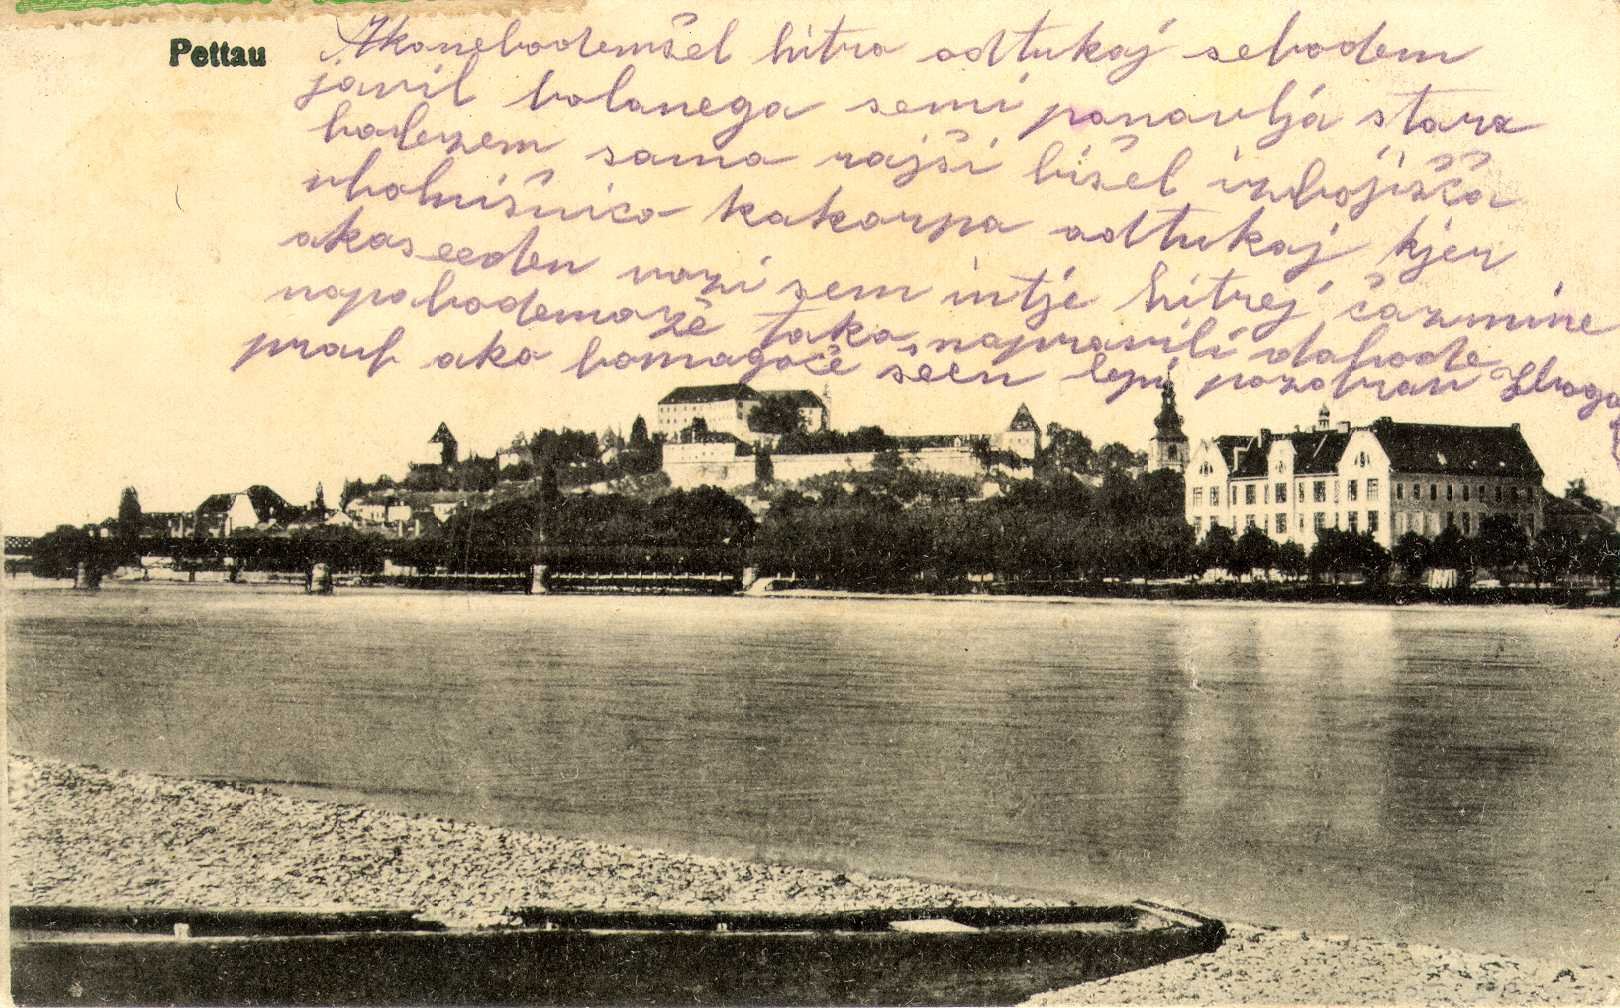 Pettau
Akonebodemšel hitro odtukaj sebodem
javil bolanega semi ponavljá staro
bolezem samo rajši bišel izbojišča
vbolnišnico kakorpa odtukaj kjer
akaseeden vozi sem intje hitrej čazmine
napobodemože tako napravili dabode
prov ako bomogoče sčen lepi pozdrav Zboga